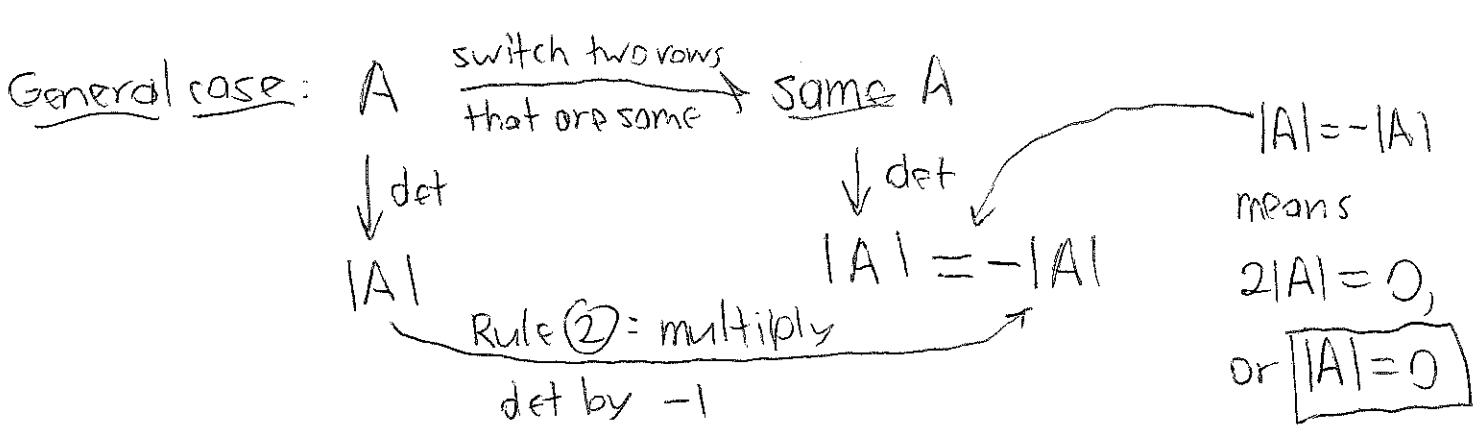 General case: A switch two rows that are same → same A
↓ det
↓ det
|A|
|A| = -|A|
Rule ② = multiply
det by -1
|A| = -|A|
means
2|A| = 0,
or |A| = 0